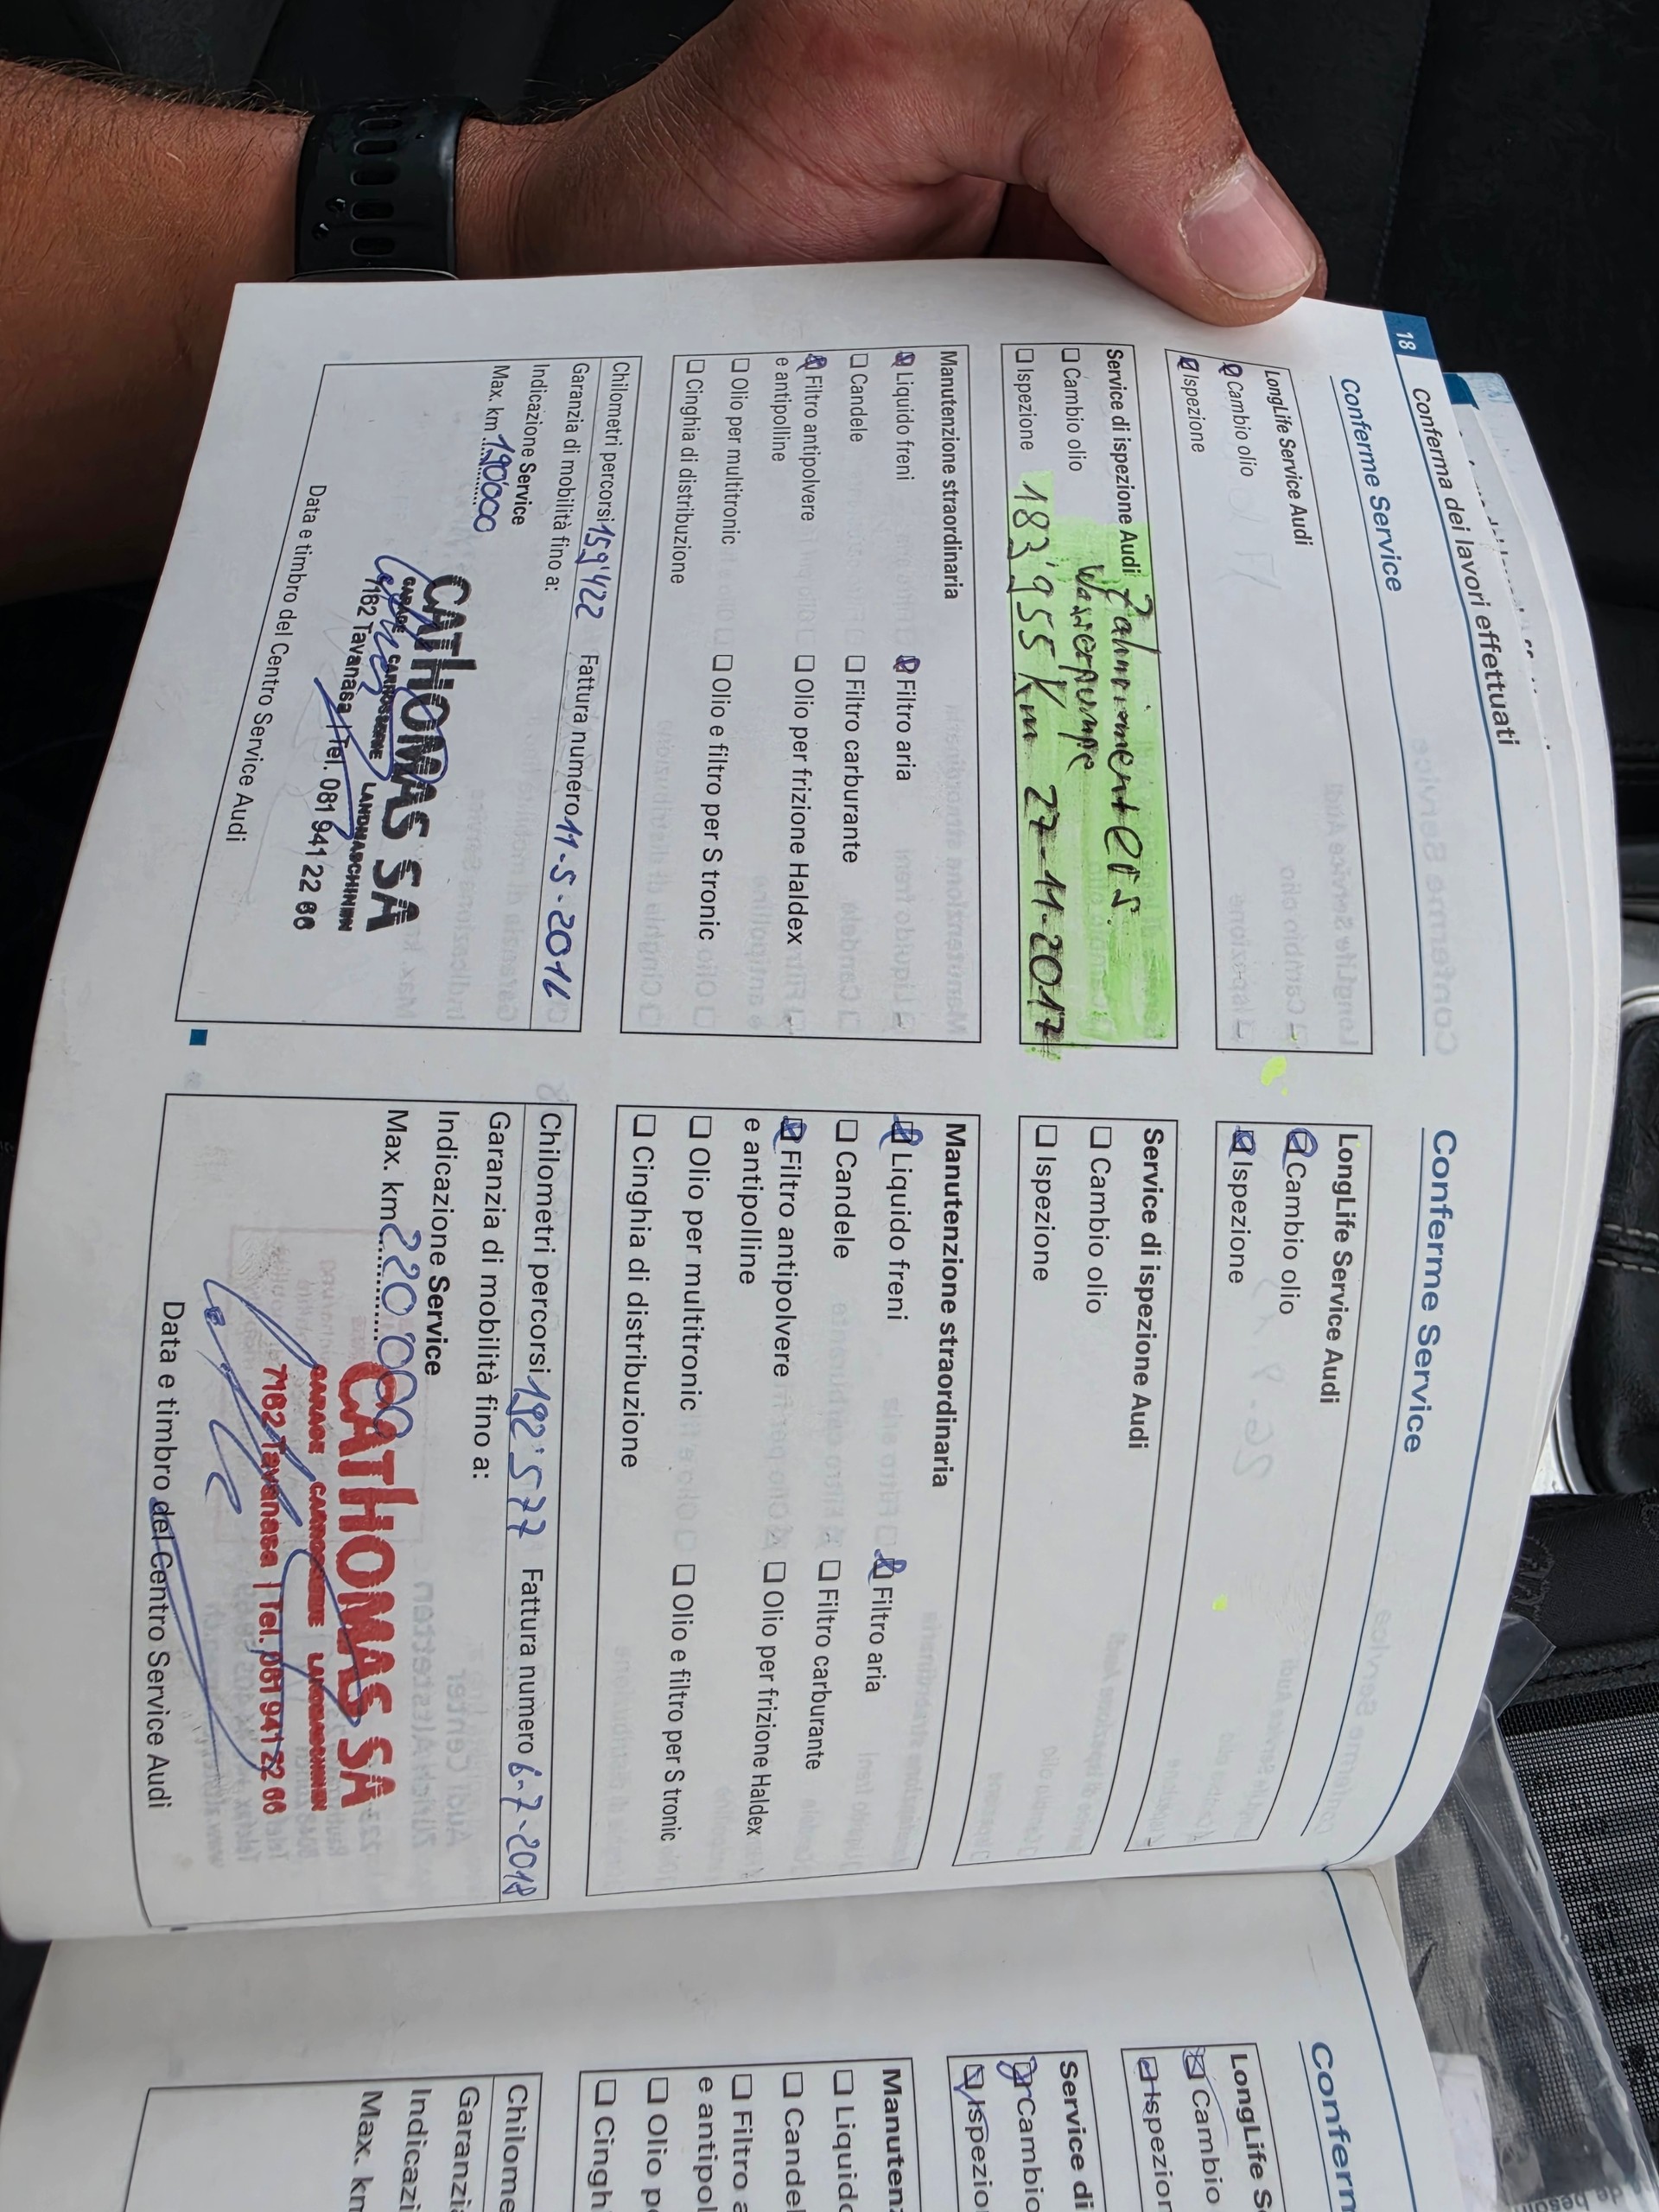 18
Conferma dei lavori effettuati
Conferme Service
LongLife Service Audi
Cambio olio
Ispezione
Service di ispezione Audi Zahnriementeis.
Cambio olio Wasserpumpe
Ispezione 183'955 Km 27-11-2017
Manutenzione straordinaria
Liquido freni Filtro aria
Candele Filtro carburante
Filtro antipolvere Olio per frizione Haldex
e antipolline
Olio per multitronic Olio e filtro per S tronic
Cinghia di distribuzione
Chilometri percorsi 159'422 Fattura numero 11-5-2016
Garanzia di mobilità fino a:
Indicazione Service
Max. km 190'000
CATHOMAS SA
GARAGE CARROSSERIE LANDMASCHINEN
7162 Tavanasa | Tel. 081 941 22 66
Data e timbro del Centro Service Audi
Conferme Service
LongLife Service Audi
Cambio olio
Ispezione
Service di ispezione Audi
Cambio olio
Ispezione
Manutenzione straordinaria
Liquido freni Filtro aria
Candele Filtro carburante
Filtro antipolvere Olio per frizione Haldex
e antipolline
Olio per multitronic Olio e filtro per S tronic
Cinghia di distribuzione
Chilometri percorsi 192'577 Fattura numero 6-7-2018
Garanzia di mobilità fino a:
Indicazione Service
Max. km 220'000
CATHOMAS SA
GARAGE CARROSSERIE LANDMASCHINEN
7162 Tavanasa | Tel. 081 941 22 66
Data e timbro del Centro Service Audi
Conferm
LongLife S
Cambio
Ispezion
Service di
Cambio
Ispezio
Manuten
Liquido
Candel
Filtro a
e antipol
Olio p
Cingh
Chilome
Garanzi
Indicazi
Max. km